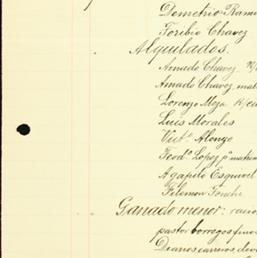 Demetrio Rami
Toribio Chavez
Alquilados.
Amado Chavez
Amado Chavez, mat
Lorenzo Meza
Luis Morales
Vict.º Alonzo
Teod.º López pª matan
Agapito Esquivel
Filemon
Ganado menor:
pastor borregos